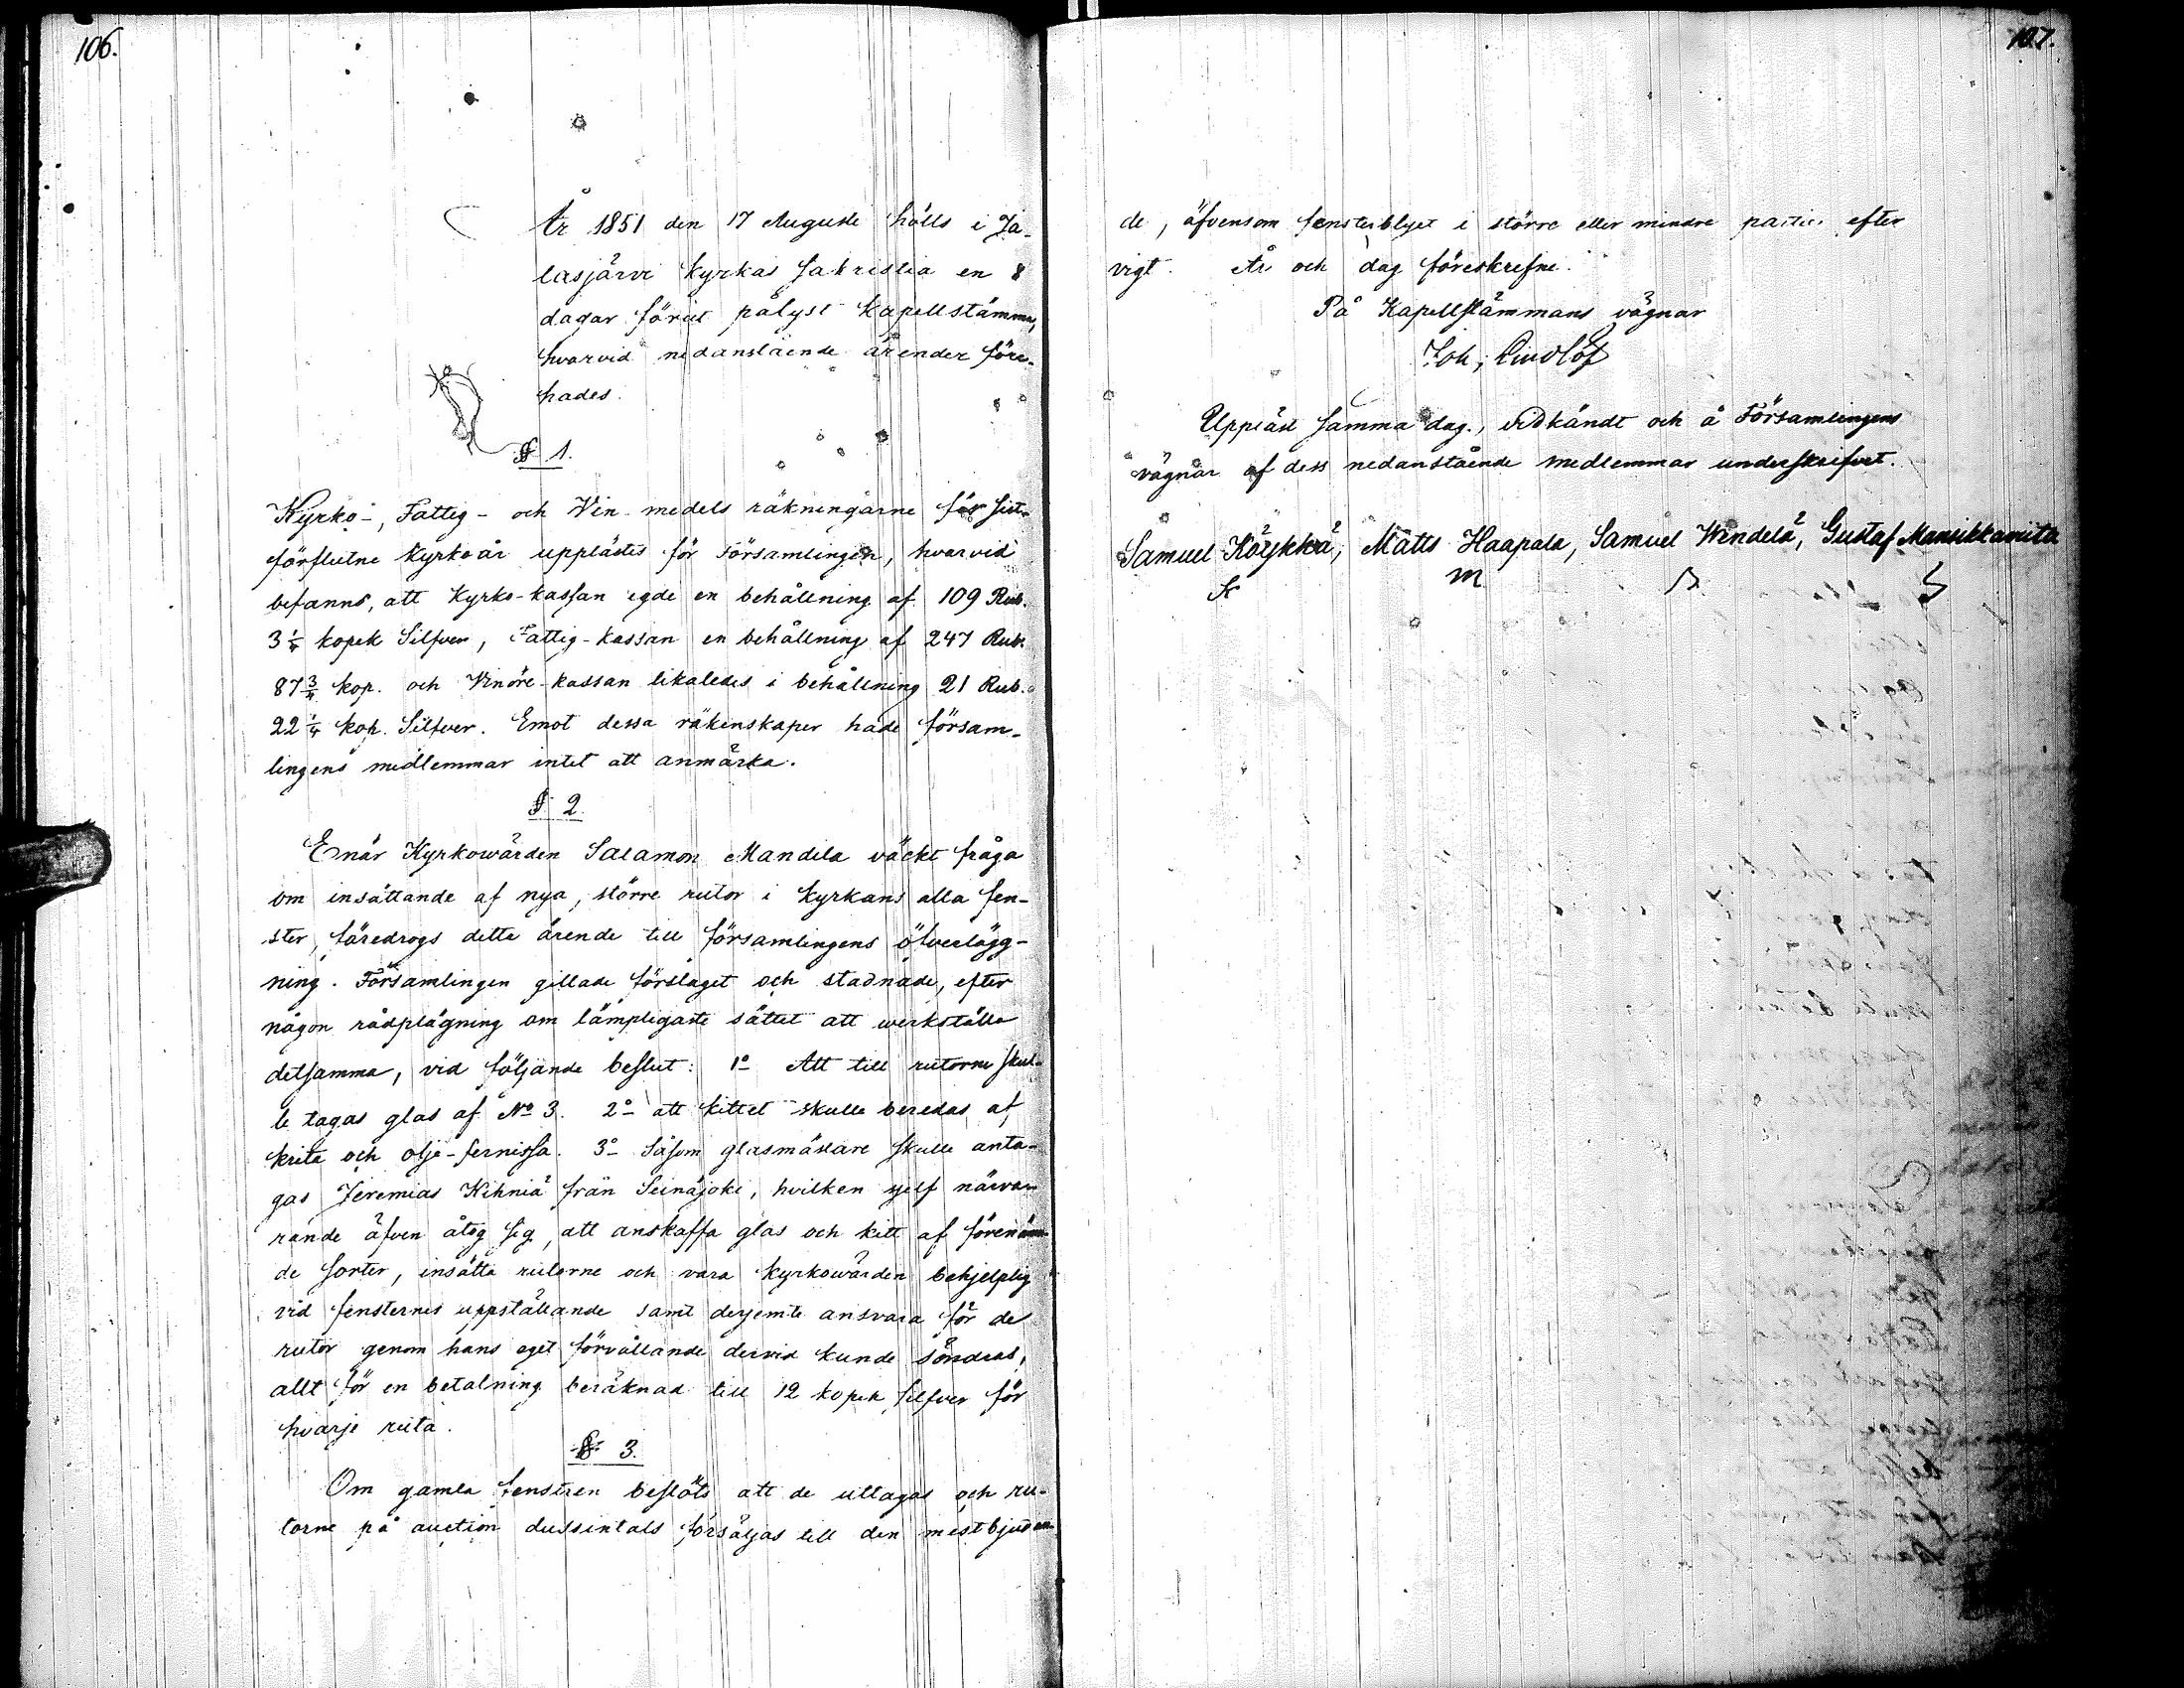 106.
År 1851 den 17 Augusti hölls i Ja-
lasjärvi kyrkas sakristia en 8
dagar förut pålyst kapellstämma,
hvarvid nedanstående ärender före-
hades.
§ 1.
Kyrko-, Fattig- och Vin-medels räkningarne för sist-
förflutne kyrkoår upplästes för Församlingen, hvarvid
befanns, att Kyrko-kassan egde en behållning af 109 Rub.
3 1/4 kopek Silfver, Fattig-kassan en behållning af 247 Rub.
87 3/4 kop. och Vinöre-kassan likaledes i behållning 21 Rub.
22 1/4 kop. Silfver. Emot dessa räkenskaper hade försam-
lingens medlemmar intet att anmärka.
§ 2.
Enär Kyrkowärden Salamon Mandila väckt fråga
om insättande af nya, större rutor i kyrkans alla fen-
ster, föredrogs detta ärende till församlingens öfverlägg-
ning. Församlingen gillade förslaget och stadnade, efter
någon rådplägning om lämpligaste sättet att werkställa
detsamma, vid följande beslut: 1o Att till rutorne skul-
le tagas glas af No 3. 2o att kittet skulle beredas af
krita och olje-fernissa. 3o Såsom glasmästare skulle anta-
gas Jeremias Kihniä från Seinäjoki, hvilken sjelf närva-
rande äfven åtog sig, att anskaffa glas och kitt af förenäm-
de sorter, insätta rutorne och vara kyrkowärden behjelplig
vid fensternes uppställande samt derjemte ansvara för de
rutor genom hans eget förvållande dervid kunde söndras,
allt för en betalning beräknad till 12 kopek silfver för
hvarje ruta.
§ 3.
Om gamla fenstren beslöts att de uttagas och ru-
torne på auction dussintals försäljas till den mestbjudan-
107.
de, äfvensom fensterblyet i större eller mindre partier efter
vigt. År och dag föreskrefne.
På Kapellstämmans vägnar
Joh, Lindlöf
Uppläst samma dag, vidkändt och å Församlingens
vägnar af dess nedanstående medlemmar underskrifvet.
Samuel Köykkä, Matts Haapala, Samuel Windelä, Gustaf Mansikkamita